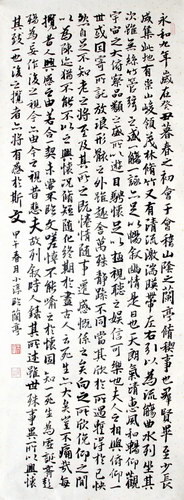 永和九年歲在癸丑暮春之初會于會稽山陰之蘭亭脩稧事也群賢畢至少長
咸集此地有崇山峻領茂林脩竹又有清流激湍暎帶左右引以為流觴曲水列坐其
次雖無絲竹管弦之盛一觴一詠亦足以暢敘幽情是日也天朗氣清惠風和暢仰觀
宇宙之大俯察品類之盛所以遊目騁懷足以極視聽之娛信可樂也夫人之相與俯仰一
世或因寄所託放浪形骸之外雖趣舍萬殊靜躁不同當其欣於所遇暫得於己快
然自足不知老之將至及其所之既惓情隨事遷感慨係之矣向之所欣俛仰之間
以為陳迹猶不能不以之興懷況脩短隨化終期於盡古人云死生亦大矣豈不痛哉每
攬昔人興感之由若合一契未嘗不臨文嗟悼不能喻之於懷固知一死生為虛誕齊彭
殤為妄作後之視今亦由今之視昔悲夫故列敘時人錄其所述雖世殊事異所以興懷
其致一也後之攬者亦將有感於斯文 甲午春月小 臨蘭亭